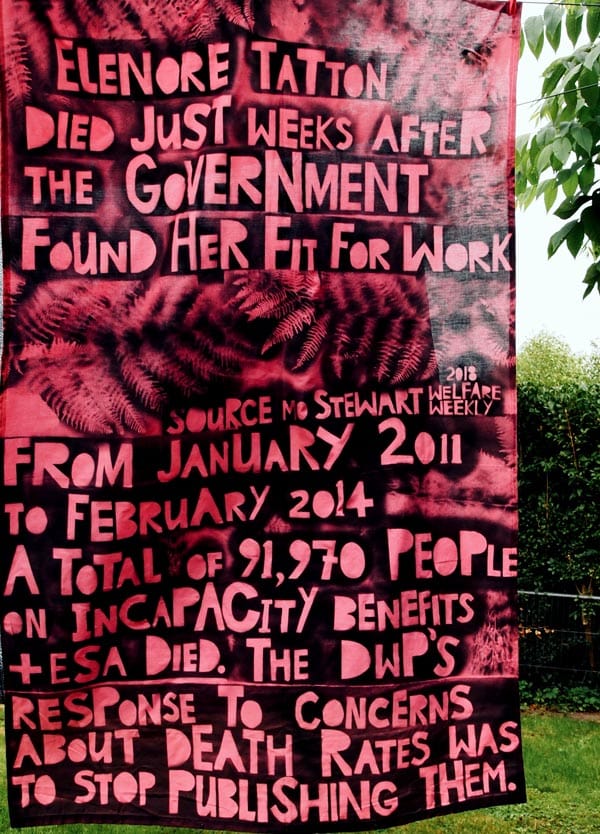 ELENORE TATTON
DIED JUST WEEKS AFTER
THE GOVERNMENT
FOUND HER FIT FOR WORK
SOURCE MO STEWART 2018 WELFARE WEEKLY
FROM JANUARY 2011
TO FEBRUARY 2014
A TOTAL OF 91,970 PEOPLE
ON INCAPACITY BENEFITS
+ESA DIED. THE DWP'S
RESPONSE TO CONCERNS
ABOUT DEATH RATES WAS
TO STOP PUBLISHING THEM.